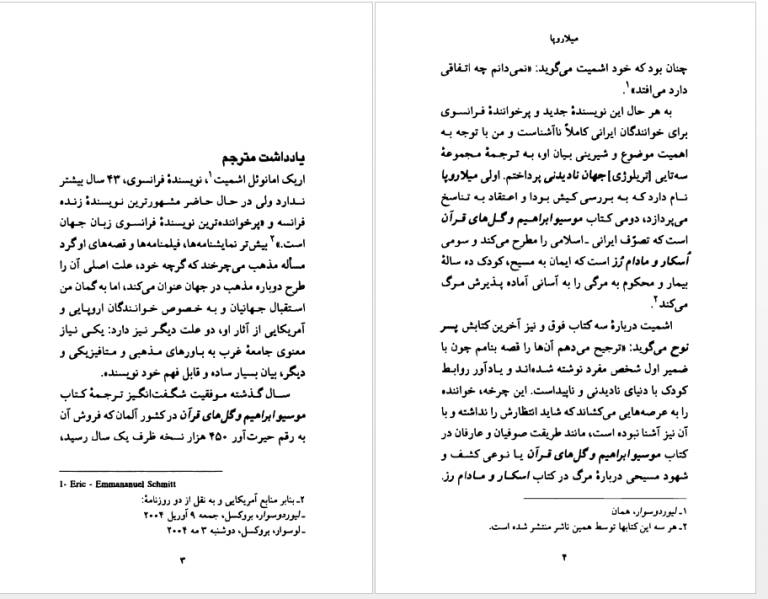 یادداشت مترجم
اریک امانوئل اشمیت۱، نویسندهٔ فرانسوی، ۴۳ سال بیشتر
ندارد ولی در حال حاضر مشهورترین نویسندهٔ زنده
فرانسه و «پرخواننده‌ترین نویسندهٔ فرانسوی زبان جهان
است.»۲ بیش‌تر نمایشنامه‌ها، فیلمنامه‌ها و قصه‌های او گرد
مسأله مذهب می‌چرخند که گرچه خود، علت اصلی آن را
طرح دوباره مذهب در جهان عنوان می‌کند، اما به گمان من
استقبال جهانیان و به خصوص خوانندگان اروپایی و
آمریکایی از آثار او، دو علت دیگر نیز دارد: یکی نیاز
معنوی جامعهٔ غرب به باورهای مذهبی و متافیزیکی و
دیگر، بیان بسیار ساده و قابل فهم خود نویسنده.
سال گذشته موفقیت شگفت‌انگیز ترجمهٔ کتاب
موسیو ابراهیم و گل‌های قرآن در کشور آلمان که فروش آن
به رقم حیرت‌آور ۴۵۰ هزار نسخه ظرف یک سال رسید،
1- Eric - Emmananuel Schmitt
۲ـ بنابر منابع آمریکایی و به نقل از دو روزنامهٔ:
ـ لیوردوسوار، بروکسل، جمعه ۹ آوریل ۲۰۰۴
ـ لوسوار، بروکسل، دوشنبه ۳ مه ۲۰۰۴
۳
میلاروپا
چنان بود که خود اشمیت می‌گوید: «نمی‌دانم چه اتفاقی
دارد می‌افتد»۱.
به هر حال این نویسندهٔ جدید و پرخوانندهٔ فرانسوی
برای خوانندگان ایرانی کاملاً ناآشناست و من با توجه به
اهمیت موضوع و شیرینی بیان او، به ترجمهٔ مجموعهٔ
سه‌تایی [تریلوژی] جهان نادیدنی پرداختم. اولی میلاروپا
نام دارد که به بررسی کیش بودا و اعتقاد به تناسخ
می‌پردازد، دومی کتاب موسیو ابراهیم و گل‌های قرآن
است که تصوّف ایرانی ـ اسلامی را مطرح می‌کند و سومی
اُسکار و مادام رُز است که ایمان به مسیح، کودک ده سالهٔ
بیمار و محکوم به مرگی را به آسانی آماده پذیرش مرگ
می‌کند۲.
اشمیت دربارهٔ سه کتاب فوق و نیز آخرین کتابش پسر
نوح می‌گوید: «ترجیح می‌دهم آن‌ها را قصه بنامم چون با
ضمیر اول شخص مفرد نوشته شده‌اند و یادآور روابط
کودک با دنیای نادیدنی و ناپیداست. این چرخه، خواننده
را به عرصه‌هایی می‌کشاند که شاید انتظارش را نداشته و با
آن نیز آشنا نبوده است، مانند طریقت صوفیان و عارفان در
کتاب موسیو ابراهیم و گل‌های قرآن یا نوعی کشف و
شهود مسیحی دربارهٔ مرگ در کتاب اسکار و مادام رز.
۱ـ لیوردوسوار، همان
۲ـ هر سه این کتابها توسط همین ناشر منتشر شده است.
۴